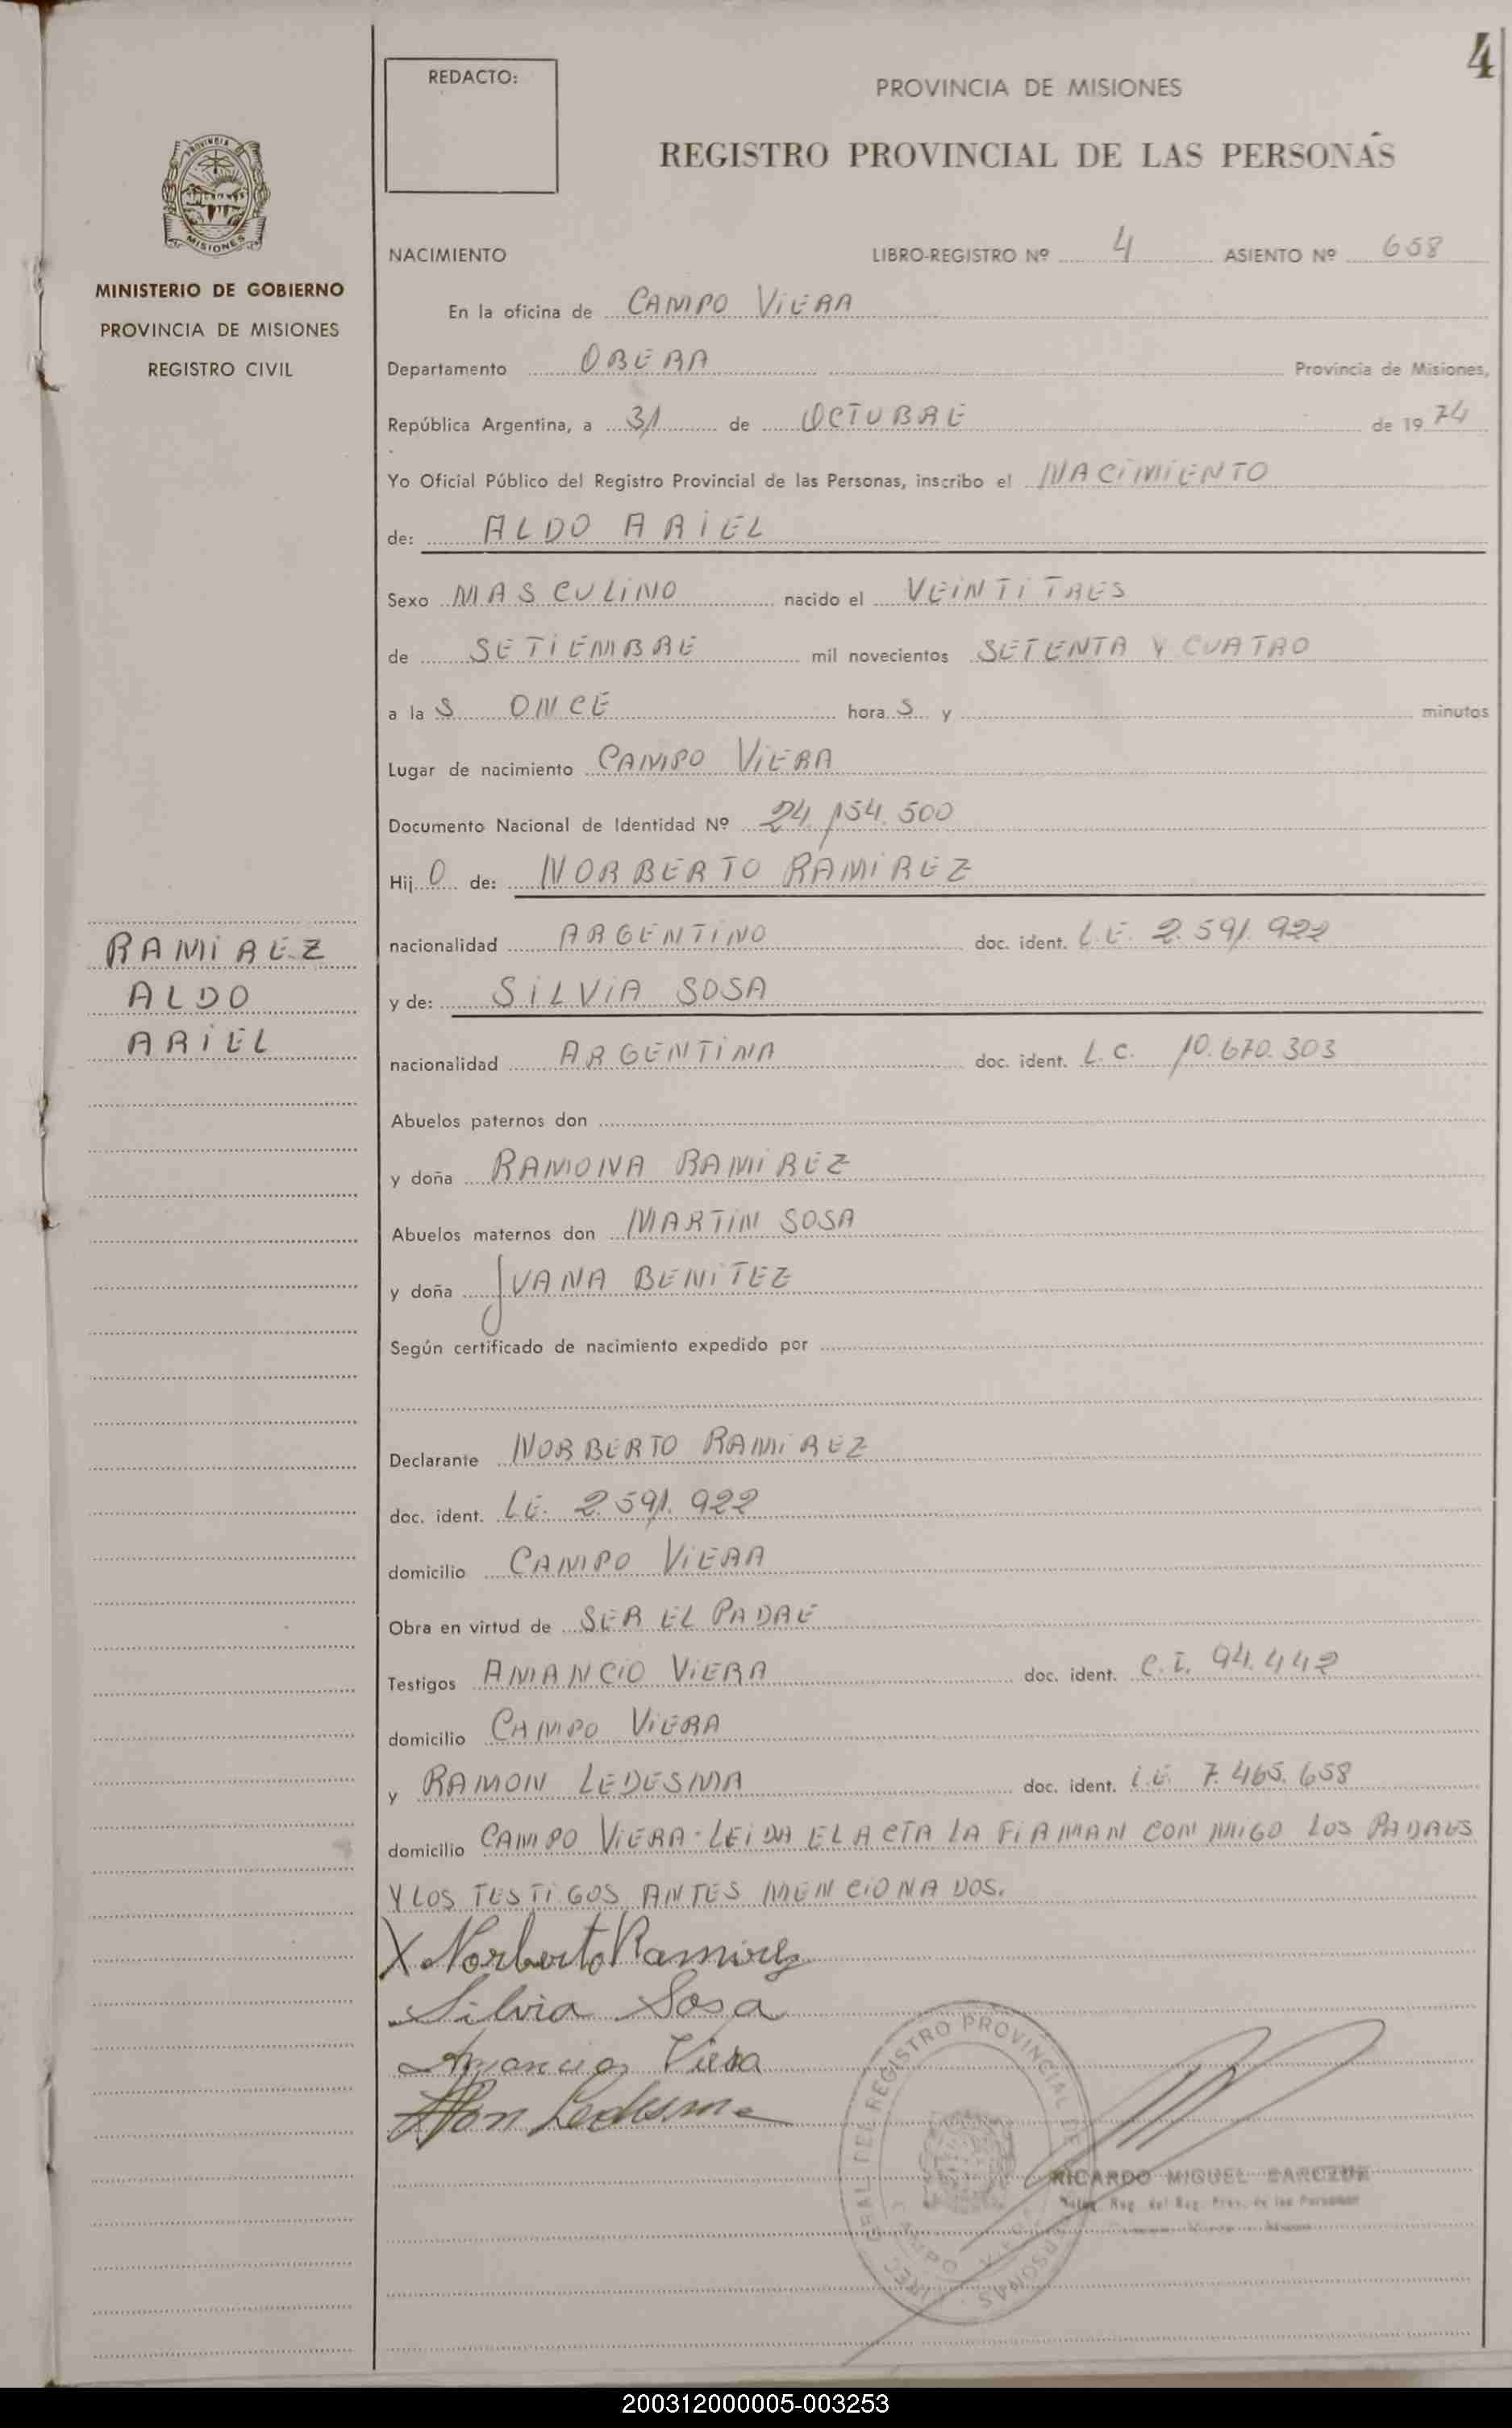 4
REDACTO:
PROVINCIA DE MISIONES
REGISTRO PROVINCIAL DE LAS PERSONAS
PROVINCIA DE
MISIONES
MINISTERIO DE GOBIERNO
PROVINCIA DE MISIONES
REGISTRO CIVIL
NACIMIENTO LIBRO-REGISTRO Nº 4 ASIENTO Nº 658
En la oficina de CAMPO VIERA
Departamento OBERA Provincia de Misiones,
República Argentina, a 31 de OCTUBRE de 1974
Yo Oficial Público del Registro Provincial de las Personas, inscribo el NACIMIENTO
de: ALDO ARIEL
Sexo MASCULINO nacido el VEINTITRES
de SETIEMBRE mil novecientos SETENTA Y CUATRO
a la S ONCE hora S y minutos
Lugar de nacimiento CAMPO VIERA
Documento Nacional de Identidad Nº 24.154.500
Hij O de: NORBERTO RAMIREZ
nacionalidad ARGENTINO doc. ident. L.E. 2.591.922
y de: SILVIA SOSA
nacionalidad ARGENTINA doc. ident. L.C. 10.670.303
RAMIREZ
ALDO
ARIEL
Abuelos paternos don
y doña RAMONA RAMIREZ
Abuelos maternos don MARTIN SOSA
y doña JUANA BENITEZ
Según certificado de nacimiento expedido por
Declarante NORBERTO RAMIREZ
doc. ident. L.E. 2.591.922
domicilio CAMPO VIERA
Obra en virtud de SER EL PADRE
Testigos AMANCIO VIERA doc. ident. C.I. 94.442
domicilio CAMPO VIERA
y RAMON LEDESMA doc. ident. L.E. 7.465.658
domicilio CAMPO VIERA - LEIDA EL ACTA LA FIRMAN CONMIGO LOS PADRES
Y LOS TESTIGOS ANTES MENCIONADOS.
X Norberto Ramirez
Silvia Sosa
Amancio Viera
Ledesma
REGISTRO PROVINCIAL DE
PERSONAS
RICARDO MIGUEL
200312000005-003253